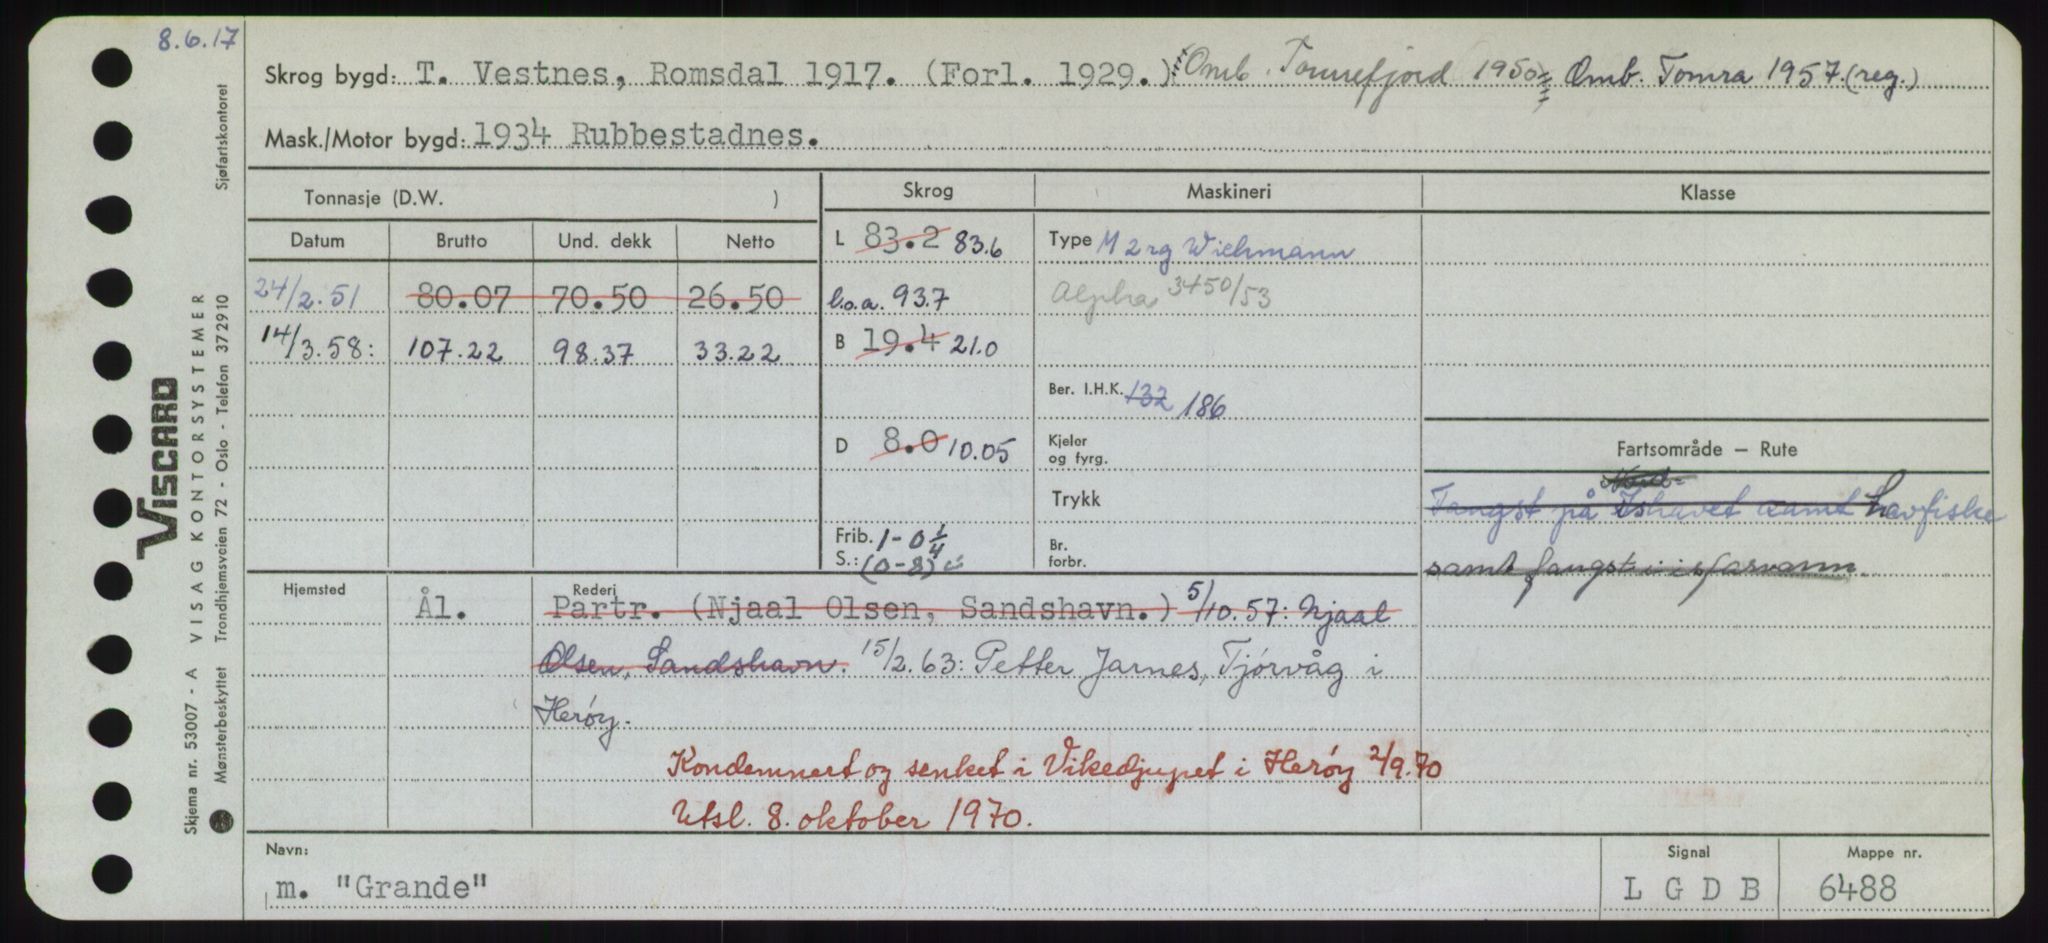 8.6.17
Skrog bygd: T. Vestnes, Romsdal 1917. (Forl. 1929.) (Omb. Tonnefjord 1950) Omb. Tomra 1957. (reg.)
Mask./Motor bygd: 1934 Rubbestadnes.
Tonnasje (D.W. )
Skrog
Maskineri
Klasse
Datum Brutto Und. dekk Netto
L 83.2 83.6
Type M 2 rg Wichmann
24/2.51 80.07 70.50 26.50
l.o.a. 93.7
Alpha 3450/53
14/3.58: 107.22 98.37 33.22
B 19.4 21.0
Ber. I.H.K. 132 186
D 8.0 10.05
Kjeler
og fyrg.
Fartsområde — Rute
Trykk
Fangst på Ishavet samt havfiske
Frib. 1-0 1/4
S.: (0-8)
Br.
forbr.
samt fangst i isfarvann.
Hjemsted Ål.
Rederi
Partr. (Njaal Olsen, Sandshavn.) 5/10.57: Njaal
Olsen, Sandshavn. 15/2.63: Petter Jarnes, Tjørvåg i
Herøy.
Kondemnert og senket i Vikedjupet i Herøy 2/9.70
Utsl. 8. oktober 1970.
Navn:
m. "Grande"
Signal
L G D B
Mappe nr.
6488
VISCARD
Skjema nr. 53007 - A VISAG KONTORSYSTEMER
Mønsterbeskyttet Trondhjemsveien 72 - Oslo - Telefon 372910
Sjøfartskontoret